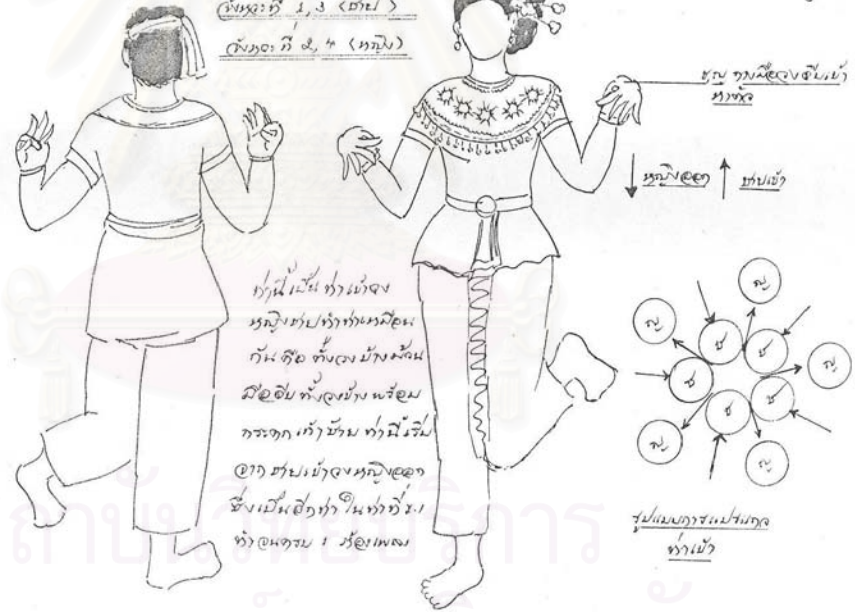 จังหวะที่ 1,3 (ชาย)
จังหวะที่ 2,4 (หญิง)
หญิงออก
ชายเข้า
ท่านี้เป็นท่าเข้าวง
หญิงชายทำท่าเหมือน
กันคือ ทั้งสองข้างม้วน
มือจีบทั้งสองข้าง พร้อม
กระดกเท้าซ้าย ท่านี้เริ่ม
จากชายเข้าวงหญิงออก
ซึ่งเป็นอีกท่า ในท่าที่
ทำจนครบ 1 ห้องเพลง
ญ
ญ
ช
ช
ญ
ช
ช
ช
ญ
ญ
รูปแบบการแปรแถว
ท่าเข้า
สถาบันวิทยบริการ